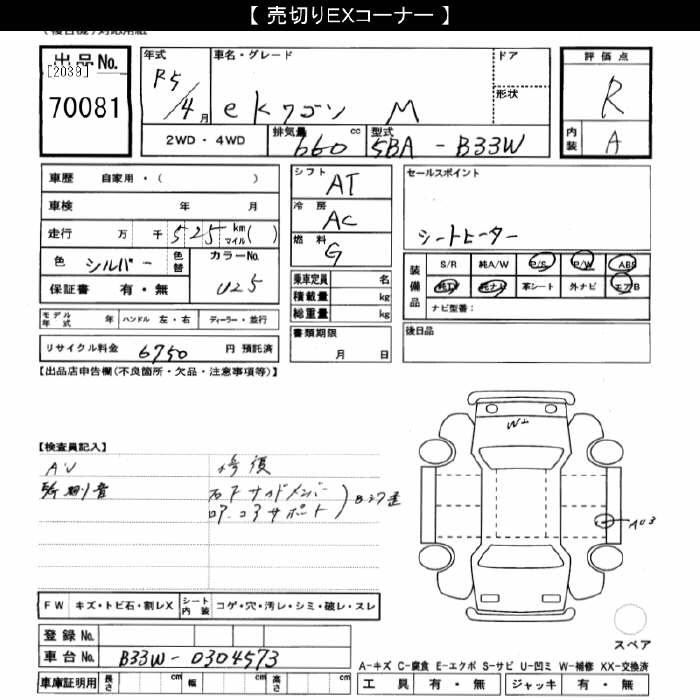 【 売切りEXコーナー 】
出品No.
[2039]
70081
年式
R5/4月
車名・グレード
eKワゴン M
ドア
形状
評価点
R
内装
A
2WD・4WD
排気量
660
cc
型式
5BA-B33W
車歴 自家用・( )
車検 年 月
走行 万 千 525 km マイル ( )
色 シルバー 色替
カラーNo.
U25
保証書 有・無
モデル年式 年 ハンドル 左・右 ディーラー・並行
リサイクル料金 6750 円 預託済
シフト
AT
冷房
AC
燃料
G
乗車定員 名
積載量 kg
総重量 kg
書類期限
月 日
セールスポイント
シートヒーター
装備品
S/R 純A/W P/S P/W ABS
純TV 純ナビ 革シート 外ナビ エアB
ナビ型番:
後日品
【出品店申告欄(不良箇所・欠品・注意事項等)】
【検査員記入】
AU
修復
右Fサイドメンバー
コアサポート
A03
FW キズ・トビ石・割レX
シート内装 コゲ・穴・汚レ・シミ・破レ・スレ
登録No.
車台No. B33W-0304573
車庫証明用 長さ cm 幅 cm 高さ cm
スペア
A-キズ C-腐食 E-エクボ S-サビ U-凹ミ W-補修 XX-交換済
工具 有・無 ジャッキ 有・無